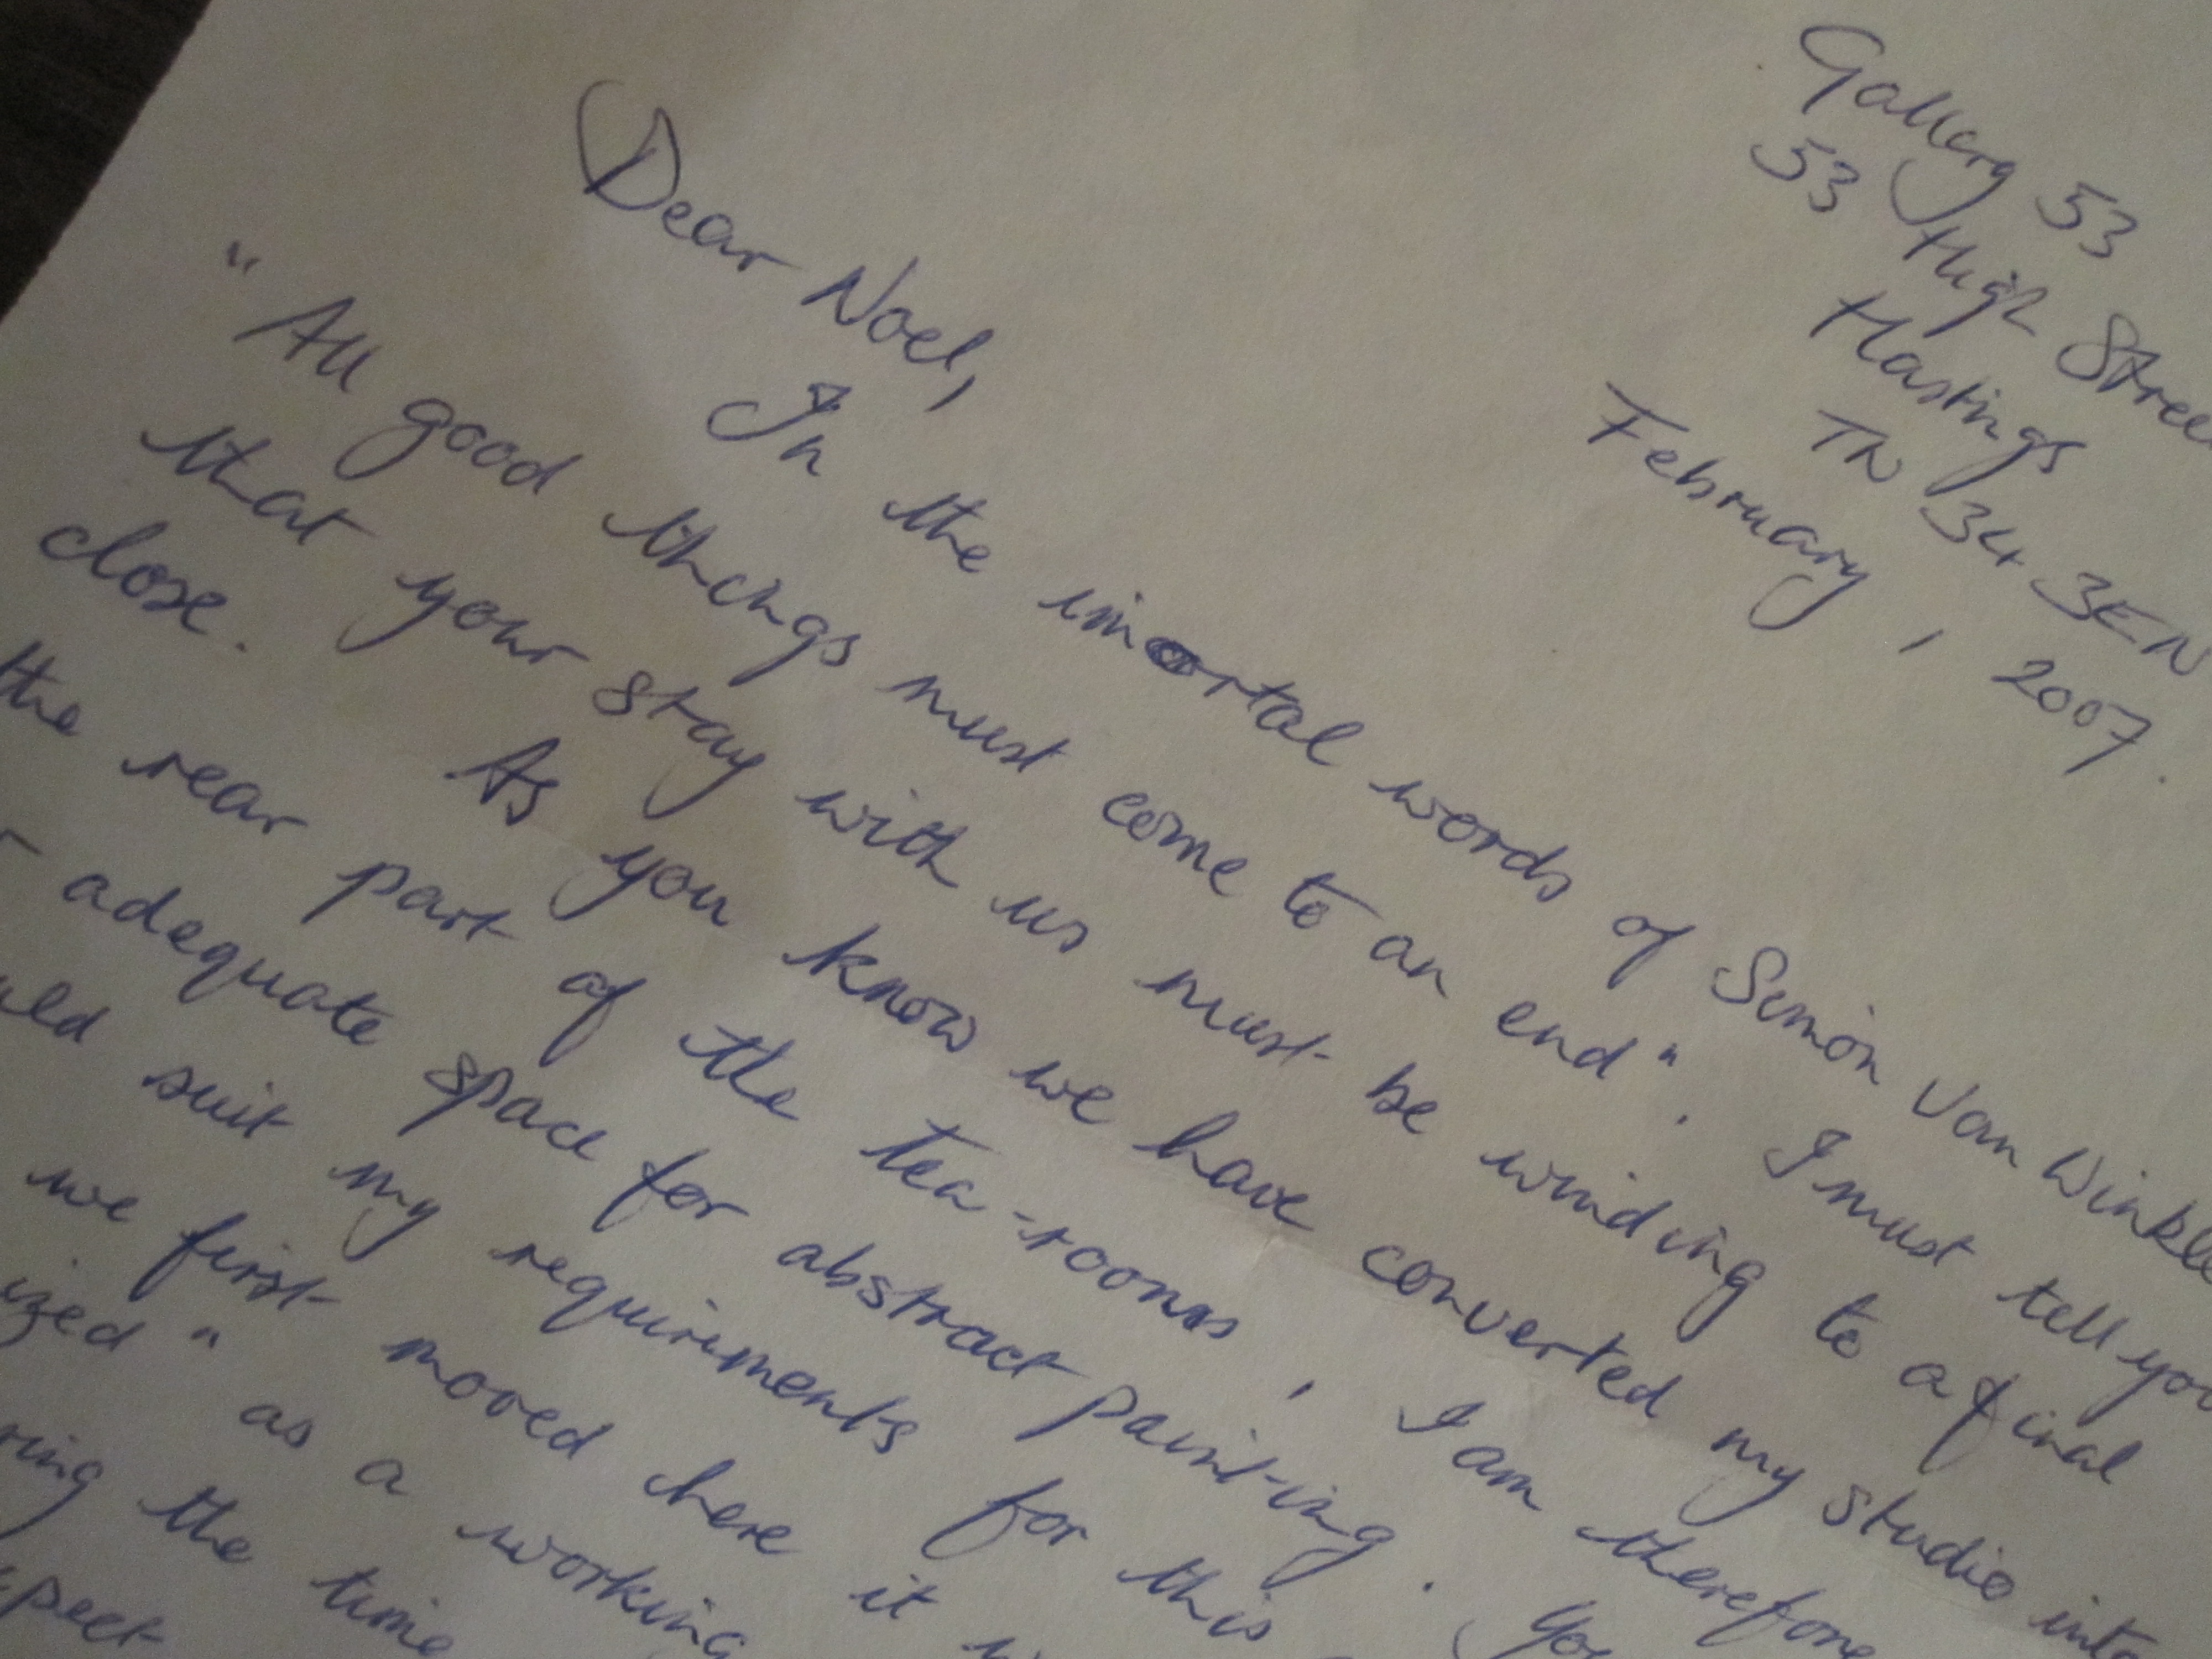 Gallery 53
53 High Stree
Hastings
TN 34 3EN
February, 2007.
Dear Noel,
In the imortal words of Simon Van Winkle
"All good things must come to an end". I must tell you
that your stay with us must be winding to a final
close. As you know we have converted my studio into
the rear part of the tea-rooms, I am therefore
adequate space for abstract painting. You
uld suit my requirements for this
we first moved here it
ized" as a working
ring the time
pect